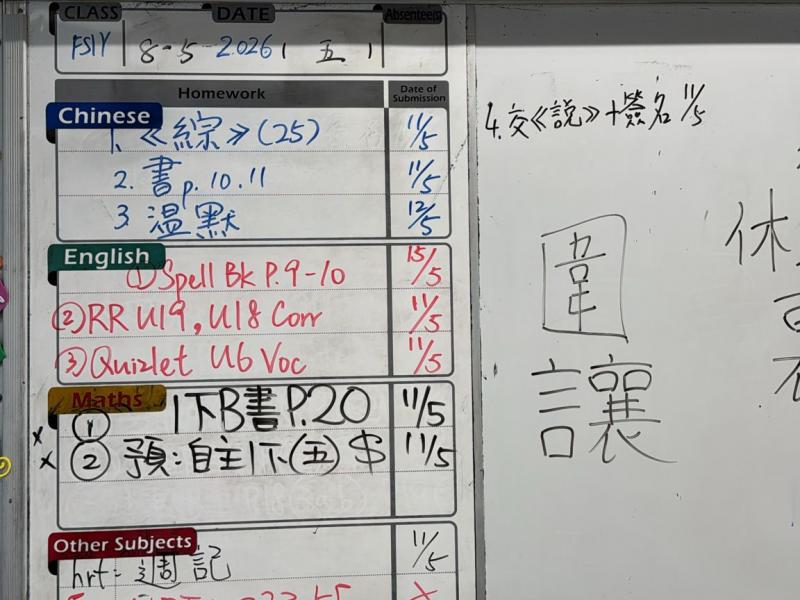 CLASS DATE Absentees
8-5 2026 ( 五 )
Homework Date of Submission
Chinese
1. 《綜》(25) 11/5
2. 書 p.10.11 11/5
3. 溫默 12/5
English
①Spell Bk P.9-10 15/5
②RR U19, U18 Corr 11/5
③Quizlet U6 Voc 11/5
Maths
① 1下B書P.20 11/5
② 預:自主1下(五) $ 11/5
Other Subjects
hrt: 週記 11/5
4. 交《說》+簽名 11/5
圍
讓
休